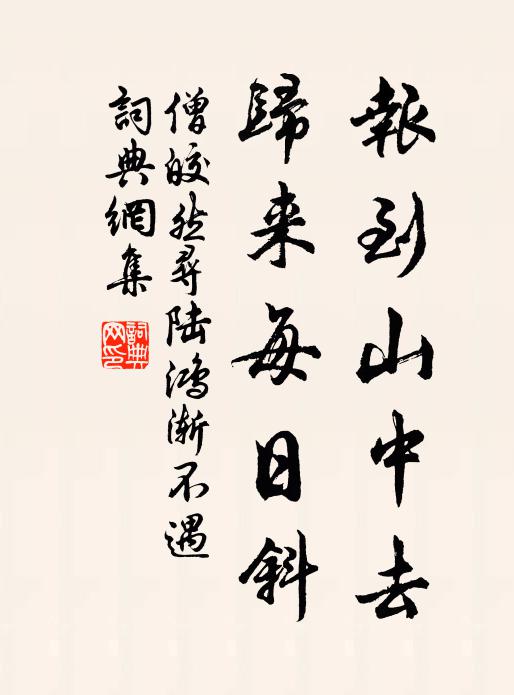 報到山中去
歸来每日斜
僧皎然尋陸鴻漸不遇
詞典網集
詞典網印